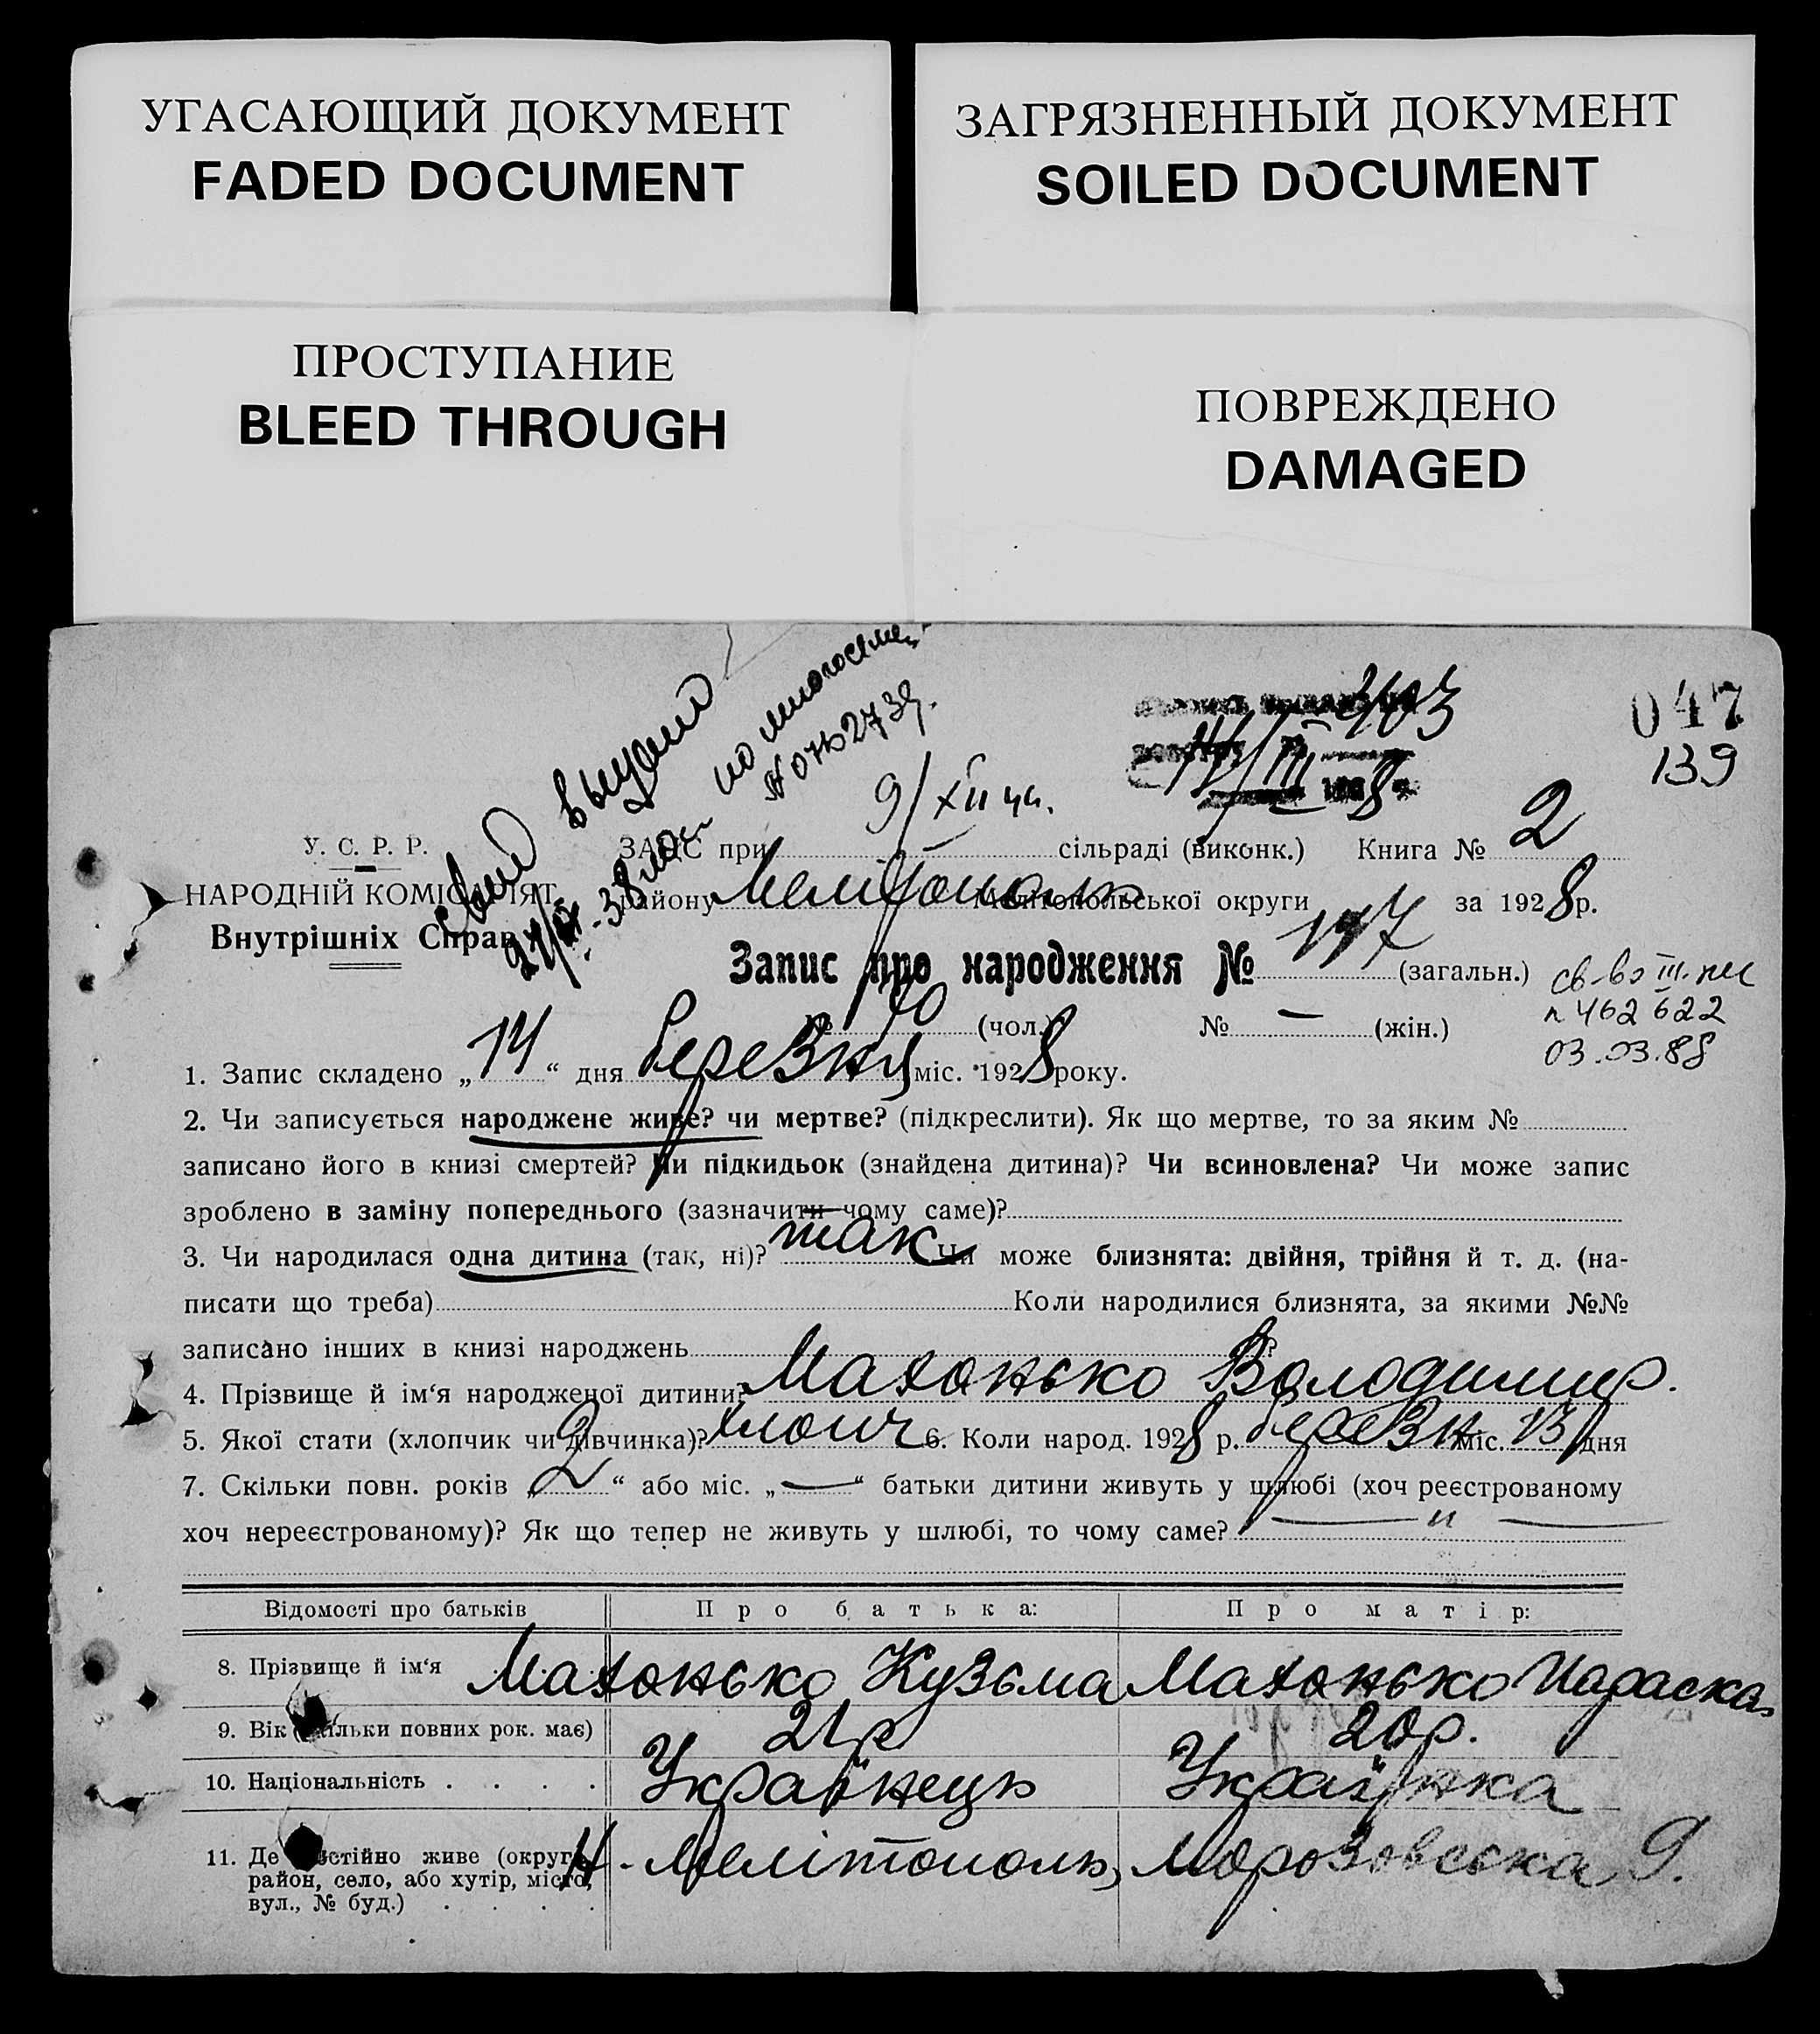 УГАСАЮЩИЙ ДОКУМЕНТ
FADED DOCUMENT
ЗАГРЯЗНЕННЫЙ ДОКУМЕНТ
SOILED DOCUMENT
ПРОСТУПАНИЕ
BLEED THROUGH
ПОВРЕЖДЕНО
DAMAGED
047
139
403
по многосемей
9/XII
У. С. Р. Р.
ЗАГС при сільраді (виконк.) Книга № 2
НАРОДНІЙ КОМІСАРІЯТ
району Мелітополь Мелітопольської округи за 1928 р.
Внутрішніх Справ
Запис про народження № 147 (загальн.)
св-во III
462 622
03.03.88
№ 70 (чол.) № — (жін.)
1. Запис складено „14“ дня березня міс. 1928 року.
2. Чи записується народжене живе? чи мертве? (підкреслити). Як що мертве, то за яким №
записано його в книзі смертей? Чи підкидьок (знайдена дитина)? Чи всиновлена? Чи може запис
зроблено в заміну попереднього (зазначити чому саме)?
3. Чи народилася одна дитина (так, ні)? так Чи може близнята: двійня, трійня й т. д. (на-
писати що треба) Коли народилися близнята, за якими №№
записано інших в книзі народжень ?
4. Прізвище й ім‘я народженої дитини? Махонько Володимир.
5. Якої стати (хлопчик чи дівчинка)? хлопч 6. Коли народ. 1928 р. березн міс. 13 дня
7. Скільки повн. років „2“ або міс. „—“ батьки дитини живуть у шлюбі (хоч реєстрованому
хоч нереєстрованому)? Як що тепер не живуть у шлюбі, то чому саме? — „ —
Відомості про батьків Про батька: Про матір:
8. Прізвище й ім‘я Махонько Кузьма Махонько Параска
9. Вік (скільки повних рок. має) 21 р 20 р.
10. Національність . . . . Українець Українка
11. Де постійно живе (округа, Н - Мелітополь, Морозовська 9.
район, село, або хутір, місто,
вул., № буд.) . . . .